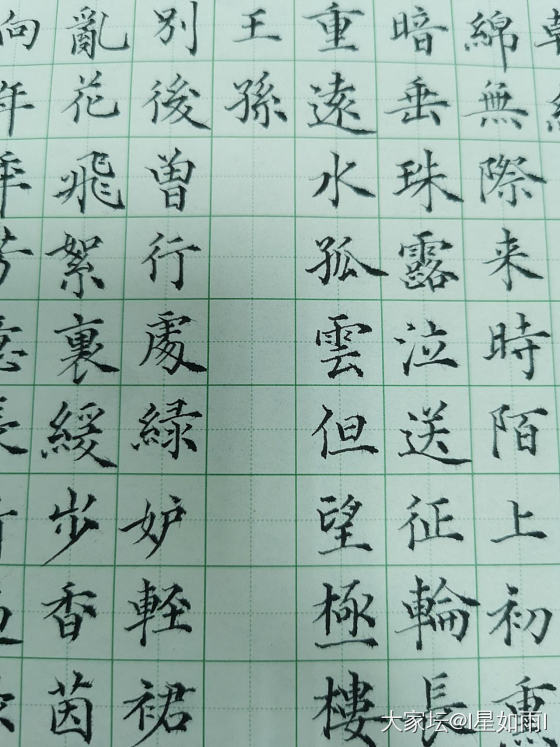 綿無際来時陌上初熏
暗垂珠露泣送征輪長
重遠水孤雲但望極樓
王孫
別後曽行處緑妒軽裙
亂花飛絮裏緩步香茵
大家坛@I星如雨I